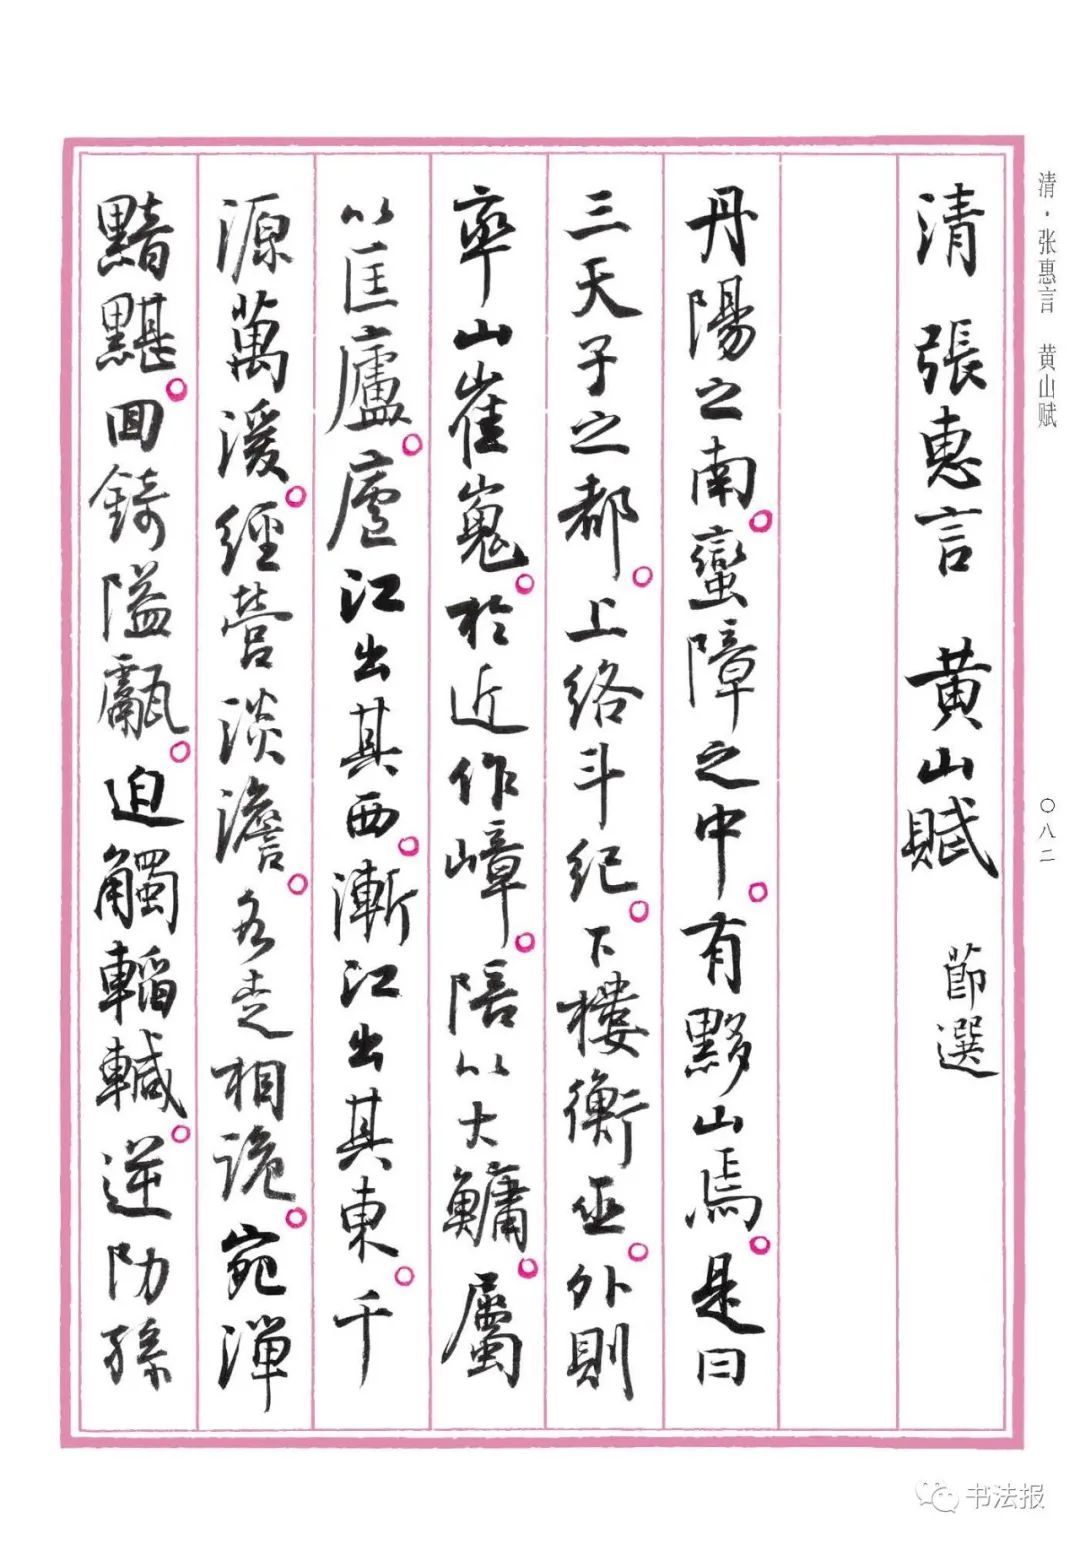 清·张惠言 黄山赋
〇八二
清 張惠言 黄山賦 節選
丹陽之南。蠻障之中。有黟山焉。是曰
三天子之都。上络斗紀。下樓衡巫。外則
率山崔嵬。於近作嶂。陪以大鱅。屬
以匡廬。廬江出其西。漸江出其東。千
源萬湲。經營淡澹。各走相詭。宛潬
黯黮。回錡隘甗。迫觸。逆阞孫
书法报